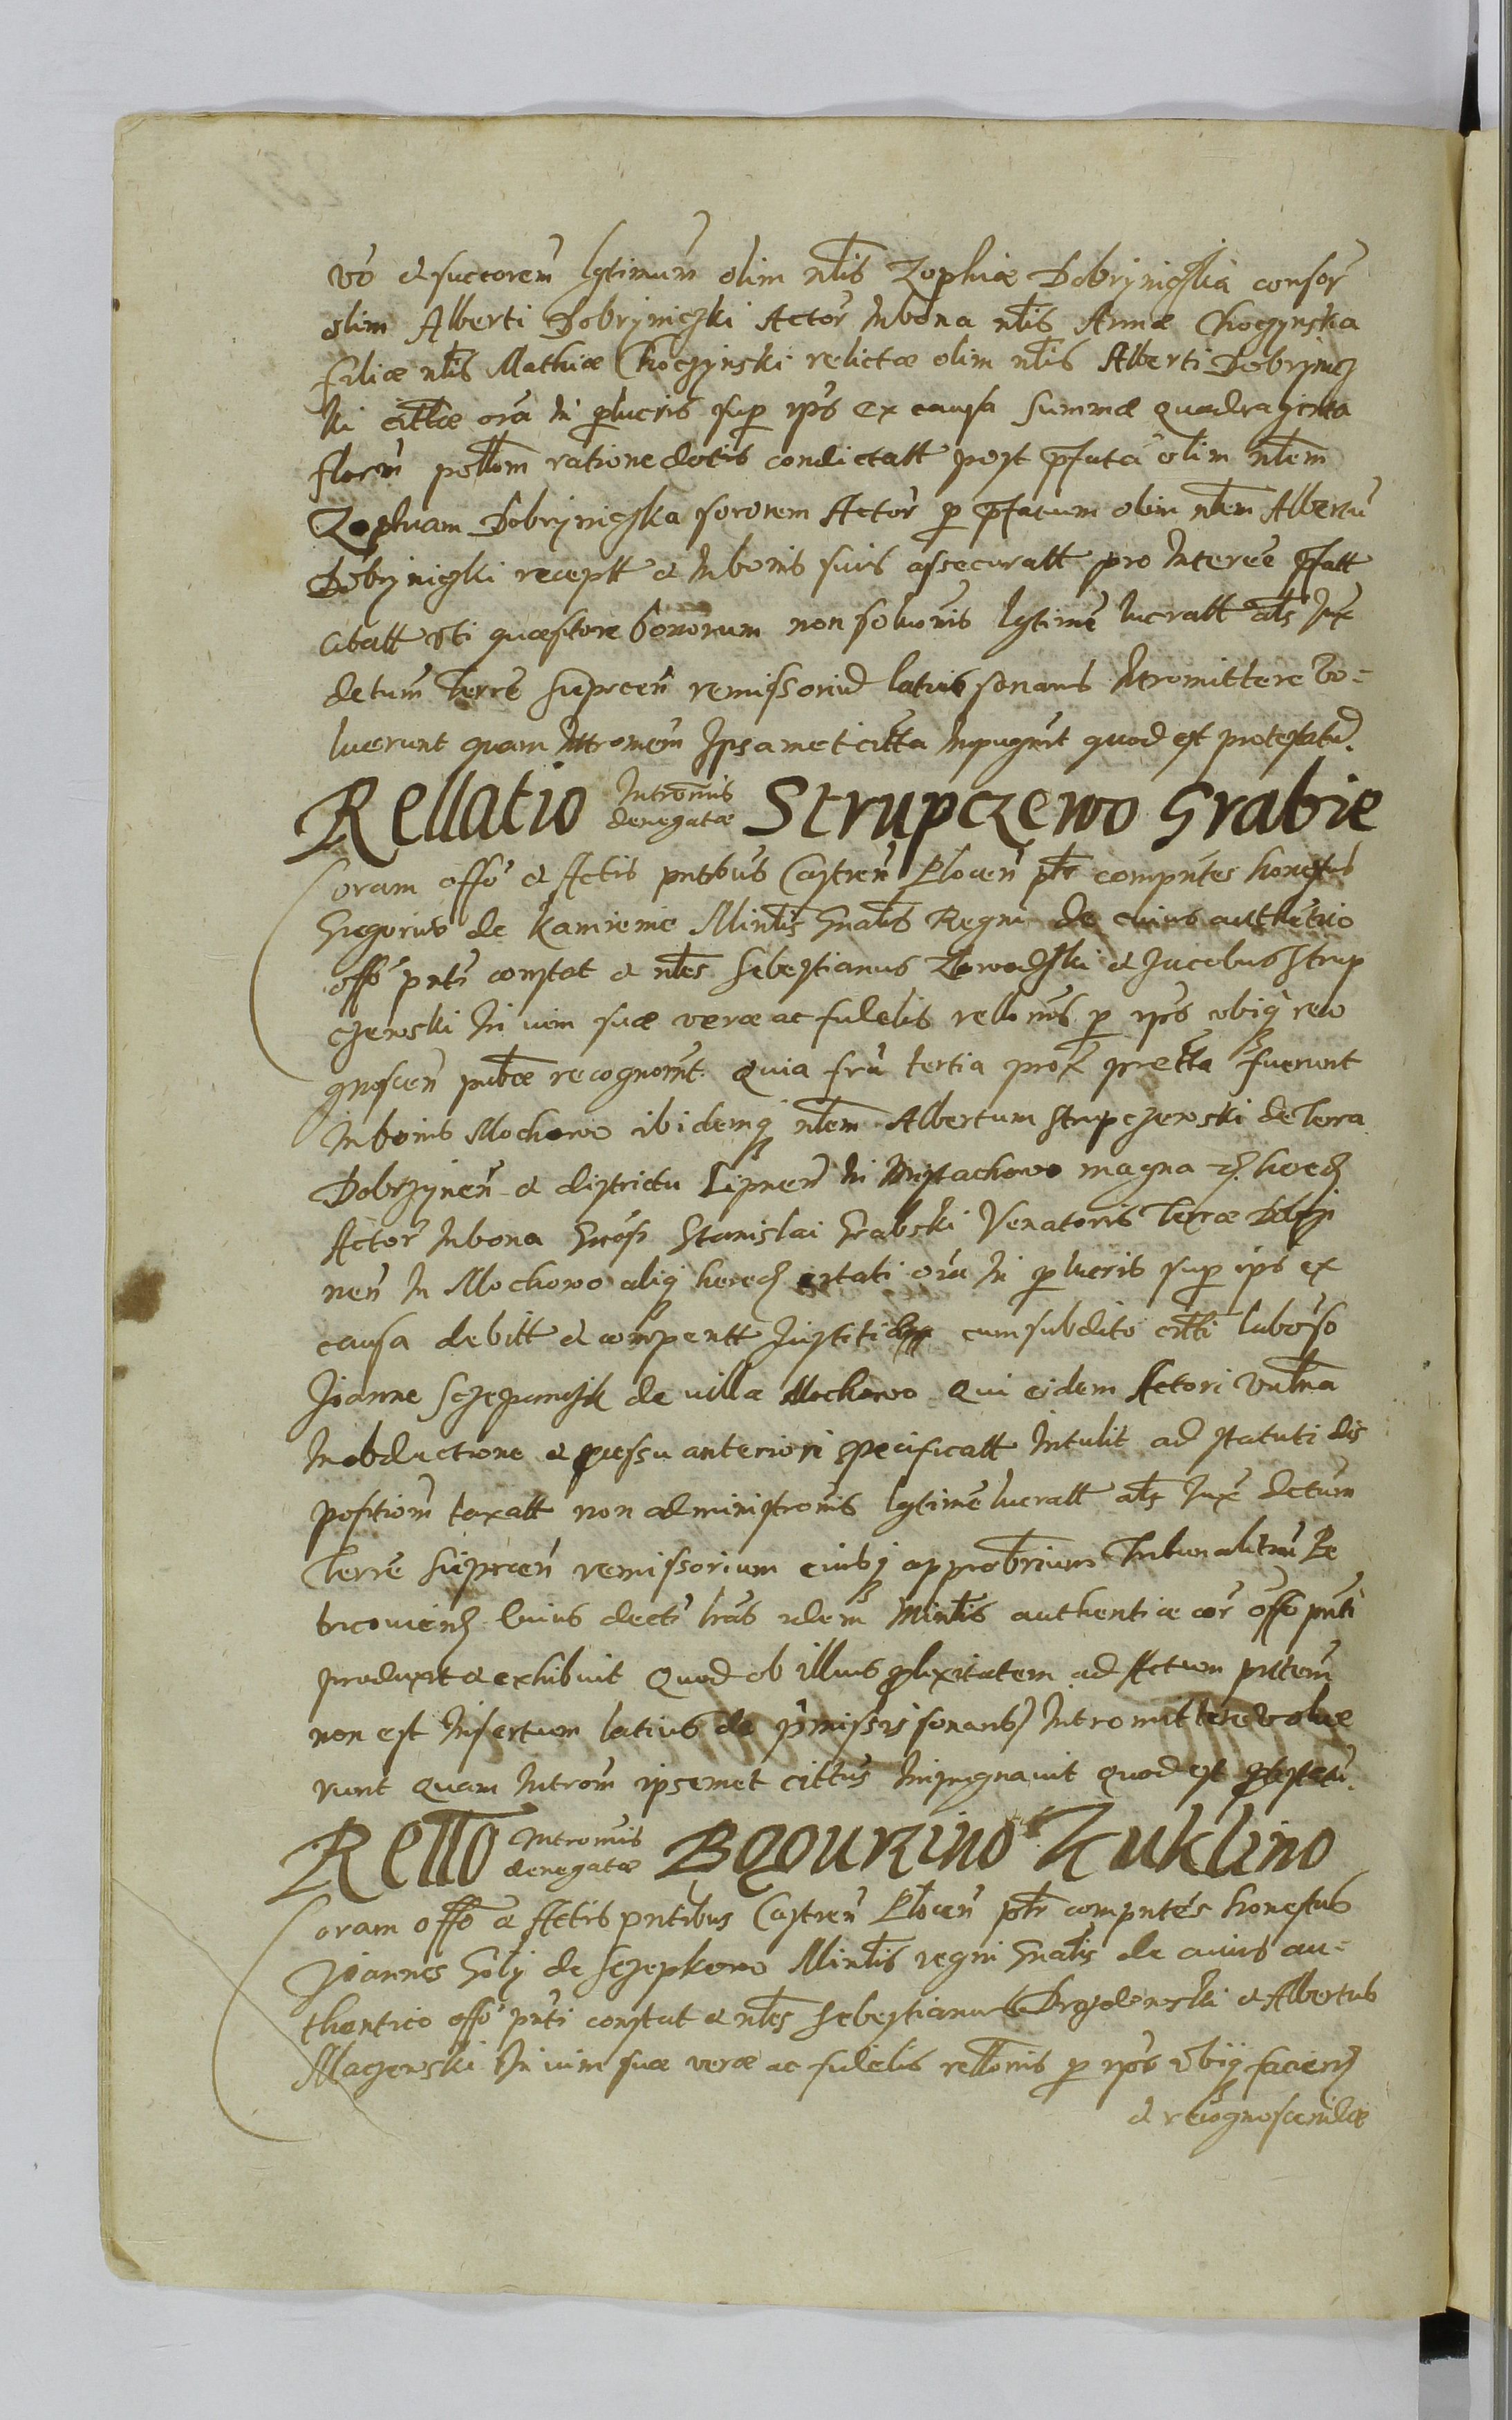 vo et succorem lgtimum olim nlis Zophiæ Dobryniczka consor
olim Alberti Dobryniczki Actor in bona nlis Annæ Choczynska
filiæ nlis Mathiæ Choczynski relictæ olim nlis Alberti Dobrynicz
ki cittæ ora in p lucris sup ips ex causa summæ quadraginta
floren pollom ratione dotis condictatt post pfatā olim nlem
Zophiam Dobryniczka sororem Actor p pfatum olim nlem Albertū
Dobryniczki receptt et in bonis suis assecuratt pro interee pfatt
citatt uti quæsitore bonorum non solvonis lgtime lucratt als jux
detum Terre Sieprcen remissoriū latius sonans intromittere vo=
luerunt quam intromem ipsamet citta inpugnit quod est protestatū.
Rellatio Intromis denegatæ Strupczewo Grabie
Coram offo et Actis pntibus Castren Plocen pltr compntes honestus
Gregorius de Kamienie Minlis Gnalis Regni de cuius authentico
offo pnti constat et nles Sebestianus Zawadzki et Jacobus Strup
czewski in vim suæ veræ ac fidelis rellonis p ips ubiq reco
gnoscen publæ recognornt Quia fra tertia prox prætta fuerunt
in bonis Mochowo ibidemq nlem Albertum Strupczewski de Terra
Dobrzynen et districtu Lipnen in Mistachowo magna hered
Actor in bona Gnosi Stanislai Grabski Venatoris Terræ Dobrzy
nen in Mochowo aliq hered citati ora in p lucris sup ips ex
causa debitt et compentt Justitiæ cum subdito citti laboso
Joanne Sczepanczik de villa Mochowo Qui eidem Actori vulnra
in obductione et pcessu anteriori specificatt intulit ad statuti dis
positiom taxatt non administronis lgtime lucratt als jux detum
Terre Sieprcen remissorium eiusq approbrium Tribunalitium Pe
tricovien cuius decti lras idem Minlis authenticæ cor offo pnti
produxit et exhibuit Quod ob illius plixitatem ad Actum pntem
non est insertum latius de pmissis sonans Intromittere volue
runt Quam Introm ipsemet cittus inpugnavit quod est ptestatū.
Rello Intromis denegatæ Bądurzino Kuklino
Coram offo et Actis pntibus Castren Plocen pltr compntes honestus
Joannes Goly de Sczepkowo Minlis regni Gnalis de cuius au=
thentico offo pnti constat et nles Sebestianus Drozdowski et Albertus
Maczewski In vim suæ veræ ac fidelis rellonis p ips ubiq facien
et recognoscendæ